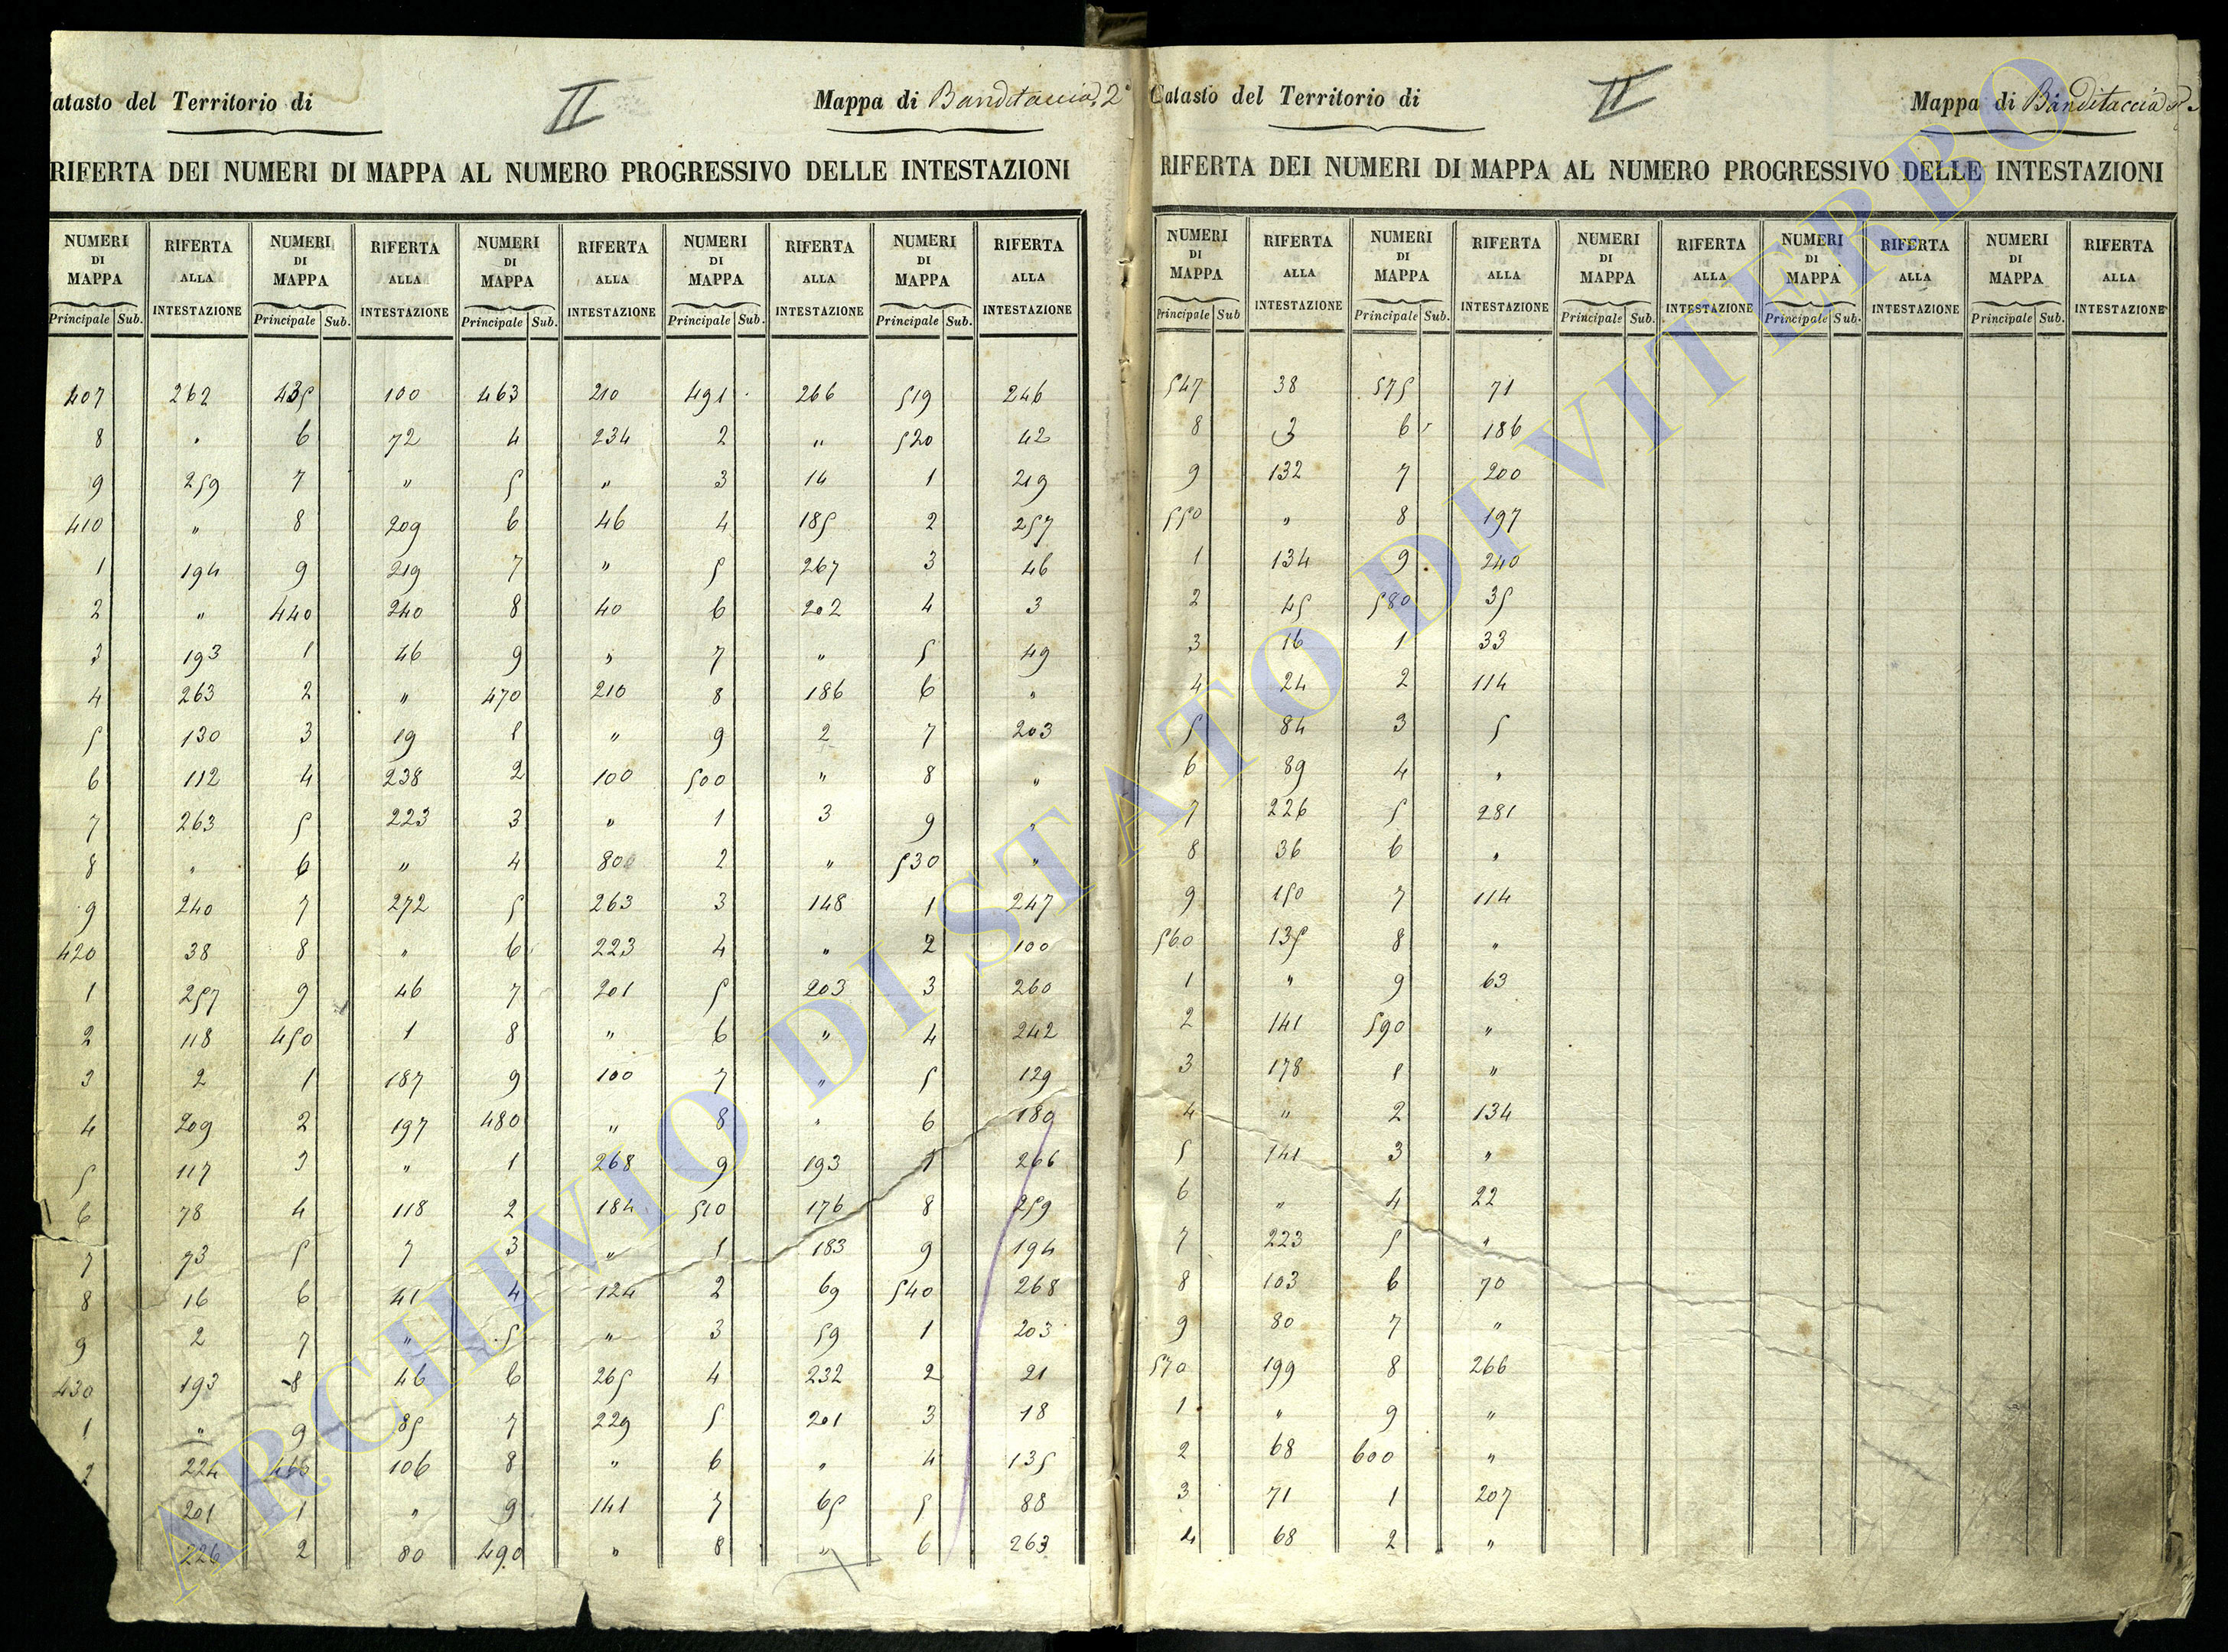 Catasto del Territorio di II Mappa di Banditaccia 2ª
RIFERTA DEI NUMERI DI MAPPA AL NUMERO PROGRESSIVO DELLE INTESTAZIONI
NUMERI DI MAPPA RIFERTA ALLA INTESTAZIONE NUMERI DI MAPPA RIFERTA ALLA INTESTAZIONE NUMERI DI MAPPA RIFERTA ALLA INTESTAZIONE NUMERI DI MAPPA RIFERTA ALLA INTESTAZIONE NUMERI DI MAPPA RIFERTA ALLA INTESTAZIONE
Principale Sub. Principale Sub. Principale Sub. Principale Sub. Principale Sub.
407 262 435 100 463 210 491 266 519 246
8 " 6 72 4 234 2 " 520 42
9 259 7 " 5 " 3 14 1 219
410 " 8 209 6 46 4 185 2 257
1 194 9 219 7 " 5 267 3 46
2 " 440 240 8 40 6 202 4 3
3 193 1 46 9 " 7 " 5 49
4 263 2 " 470 210 8 186 6 "
5 130 3 19 1 " 9 2 7 203
6 112 4 238 2 100 500 " 8 "
7 263 5 223 3 " 1 3 9 "
8 " 6 " 4 800 2 " 530 "
9 240 7 272 5 263 3 148 1 247
420 38 8 " 6 223 4 " 2 100
1 257 9 46 7 201 5 203 3 260
2 118 450 1 8 " 6 " 4 242
3 2 1 187 9 100 7 " 5 129
4 209 2 197 480 " 8 " 6 180
5 117 3 " 1 268 9 193 7 266
6 78 4 118 2 184 510 176 8 259
7 73 5 7 3 " 1 183 9 194
8 16 6 41 4 124 2 69 540 268
9 2 7 " 5 " 3 59 1 203
430 193 8 46 6 265 4 232 2 21
1 " 9 85 7 229 5 201 3 18
2 224 460 106 8 " 6 " 4 135
201 1 " 9 141 7 65 5 88
226 2 80 490 " 8 " 6 263
Catasto del Territorio di II Mappa di Banditaccia
RIFERTA DEI NUMERI DI MAPPA AL NUMERO PROGRESSIVO DELLE INTESTAZIONI
NUMERI DI MAPPA RIFERTA ALLA INTESTAZIONE NUMERI DI MAPPA RIFERTA ALLA INTESTAZIONE NUMERI DI MAPPA RIFERTA ALLA INTESTAZIONE NUMERI DI MAPPA RIFERTA ALLA INTESTAZIONE NUMERI DI MAPPA RIFERTA ALLA INTESTAZIONE
Principale Sub Principale Sub. Principale Sub. Principale Sub. Principale Sub.
547 38 575 71
8 3 6 186
9 132 7 200
550 " 8 197
1 134 9 240
2 45 580 35
3 16 1 33
4 24 2 114
5 84 3 5
6 89 4 "
7 226 5 281
8 36 6 "
9 150 7 114
560 135 8 "
1 " 9 63
2 141 590 "
3 178 1 "
4 " 2 134
5 141 3 "
6 " 4 22
7 223 5 "
8 103 6 70
9 80 7 "
570 199 8 266
1 " 9 "
2 68 600 "
3 71 1 207
4 68 2 "
ARCHIVIO DI STATO DI VITERBO